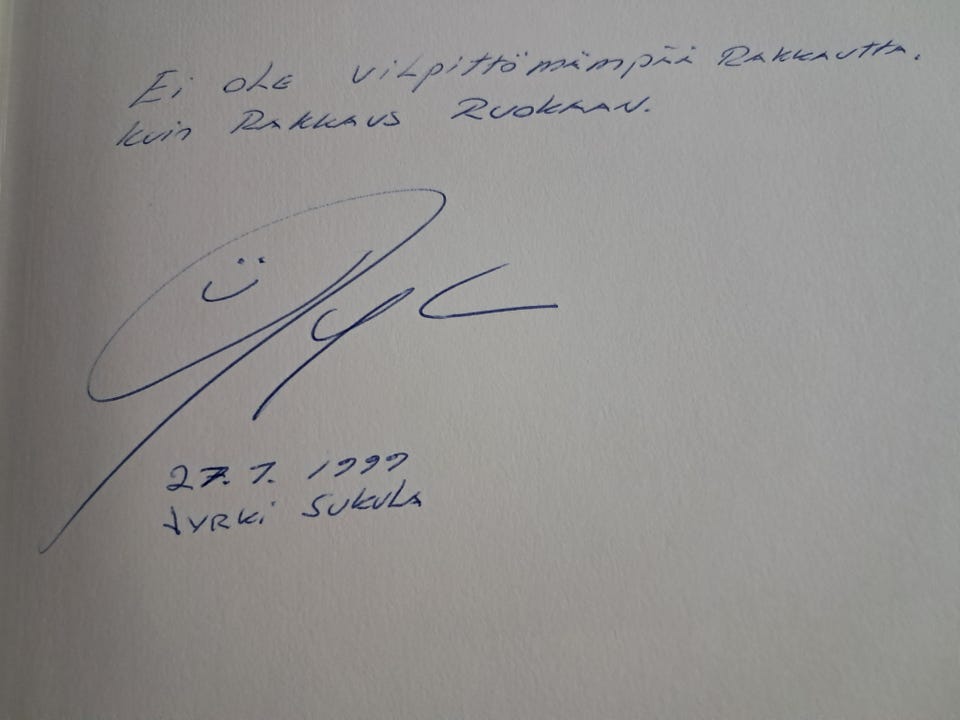 Ei OLE vilpittömämpää Rakkautta.
kuin Rakkaus Ruokaan.
27.7. 1999
Jyrki Sukula